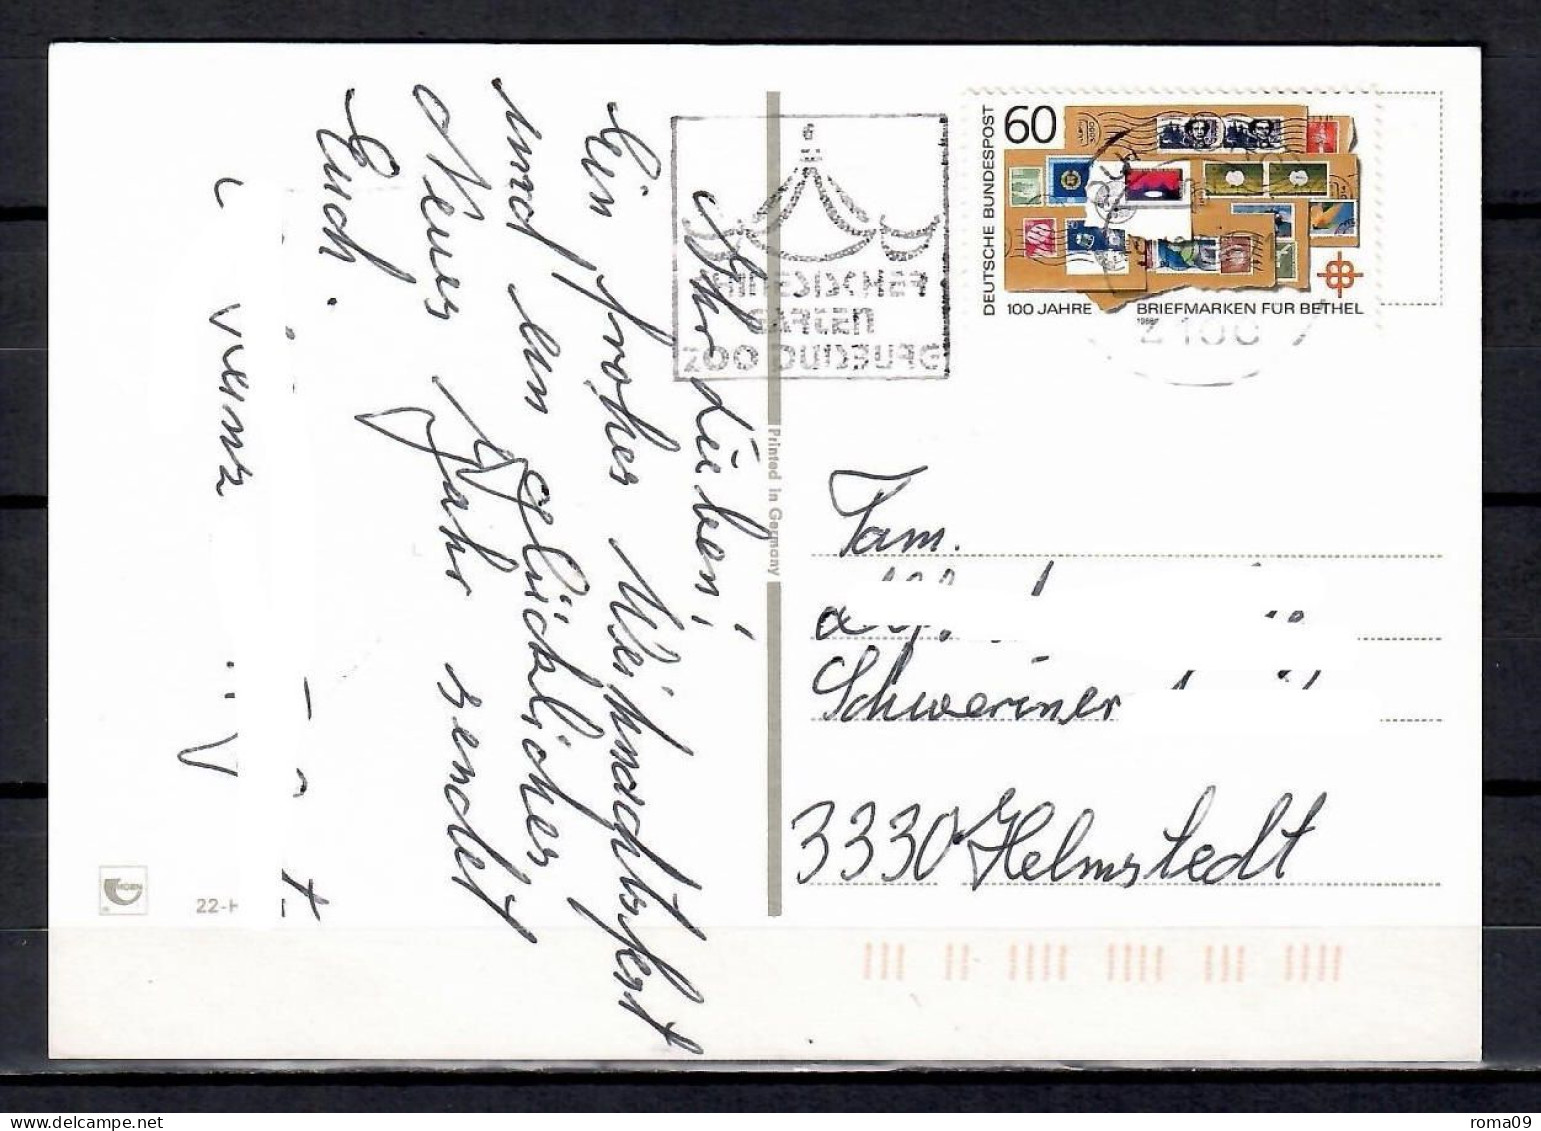 Ihr Lieben!
Ein frohes Weihnachtsfest
und ein glückliches
Neues Jahr sendet
Euch.
22-H
Printed in Germany
CHINESISCHER
GARTEN
ZOO DUISBURG
60
DEUTSCHE BUNDESPOST
100 JAHRE BRIEFMARKEN FÜR BETHEL
1988
2100
Fam.
Schweriner
3330 Helmstedt
roma09